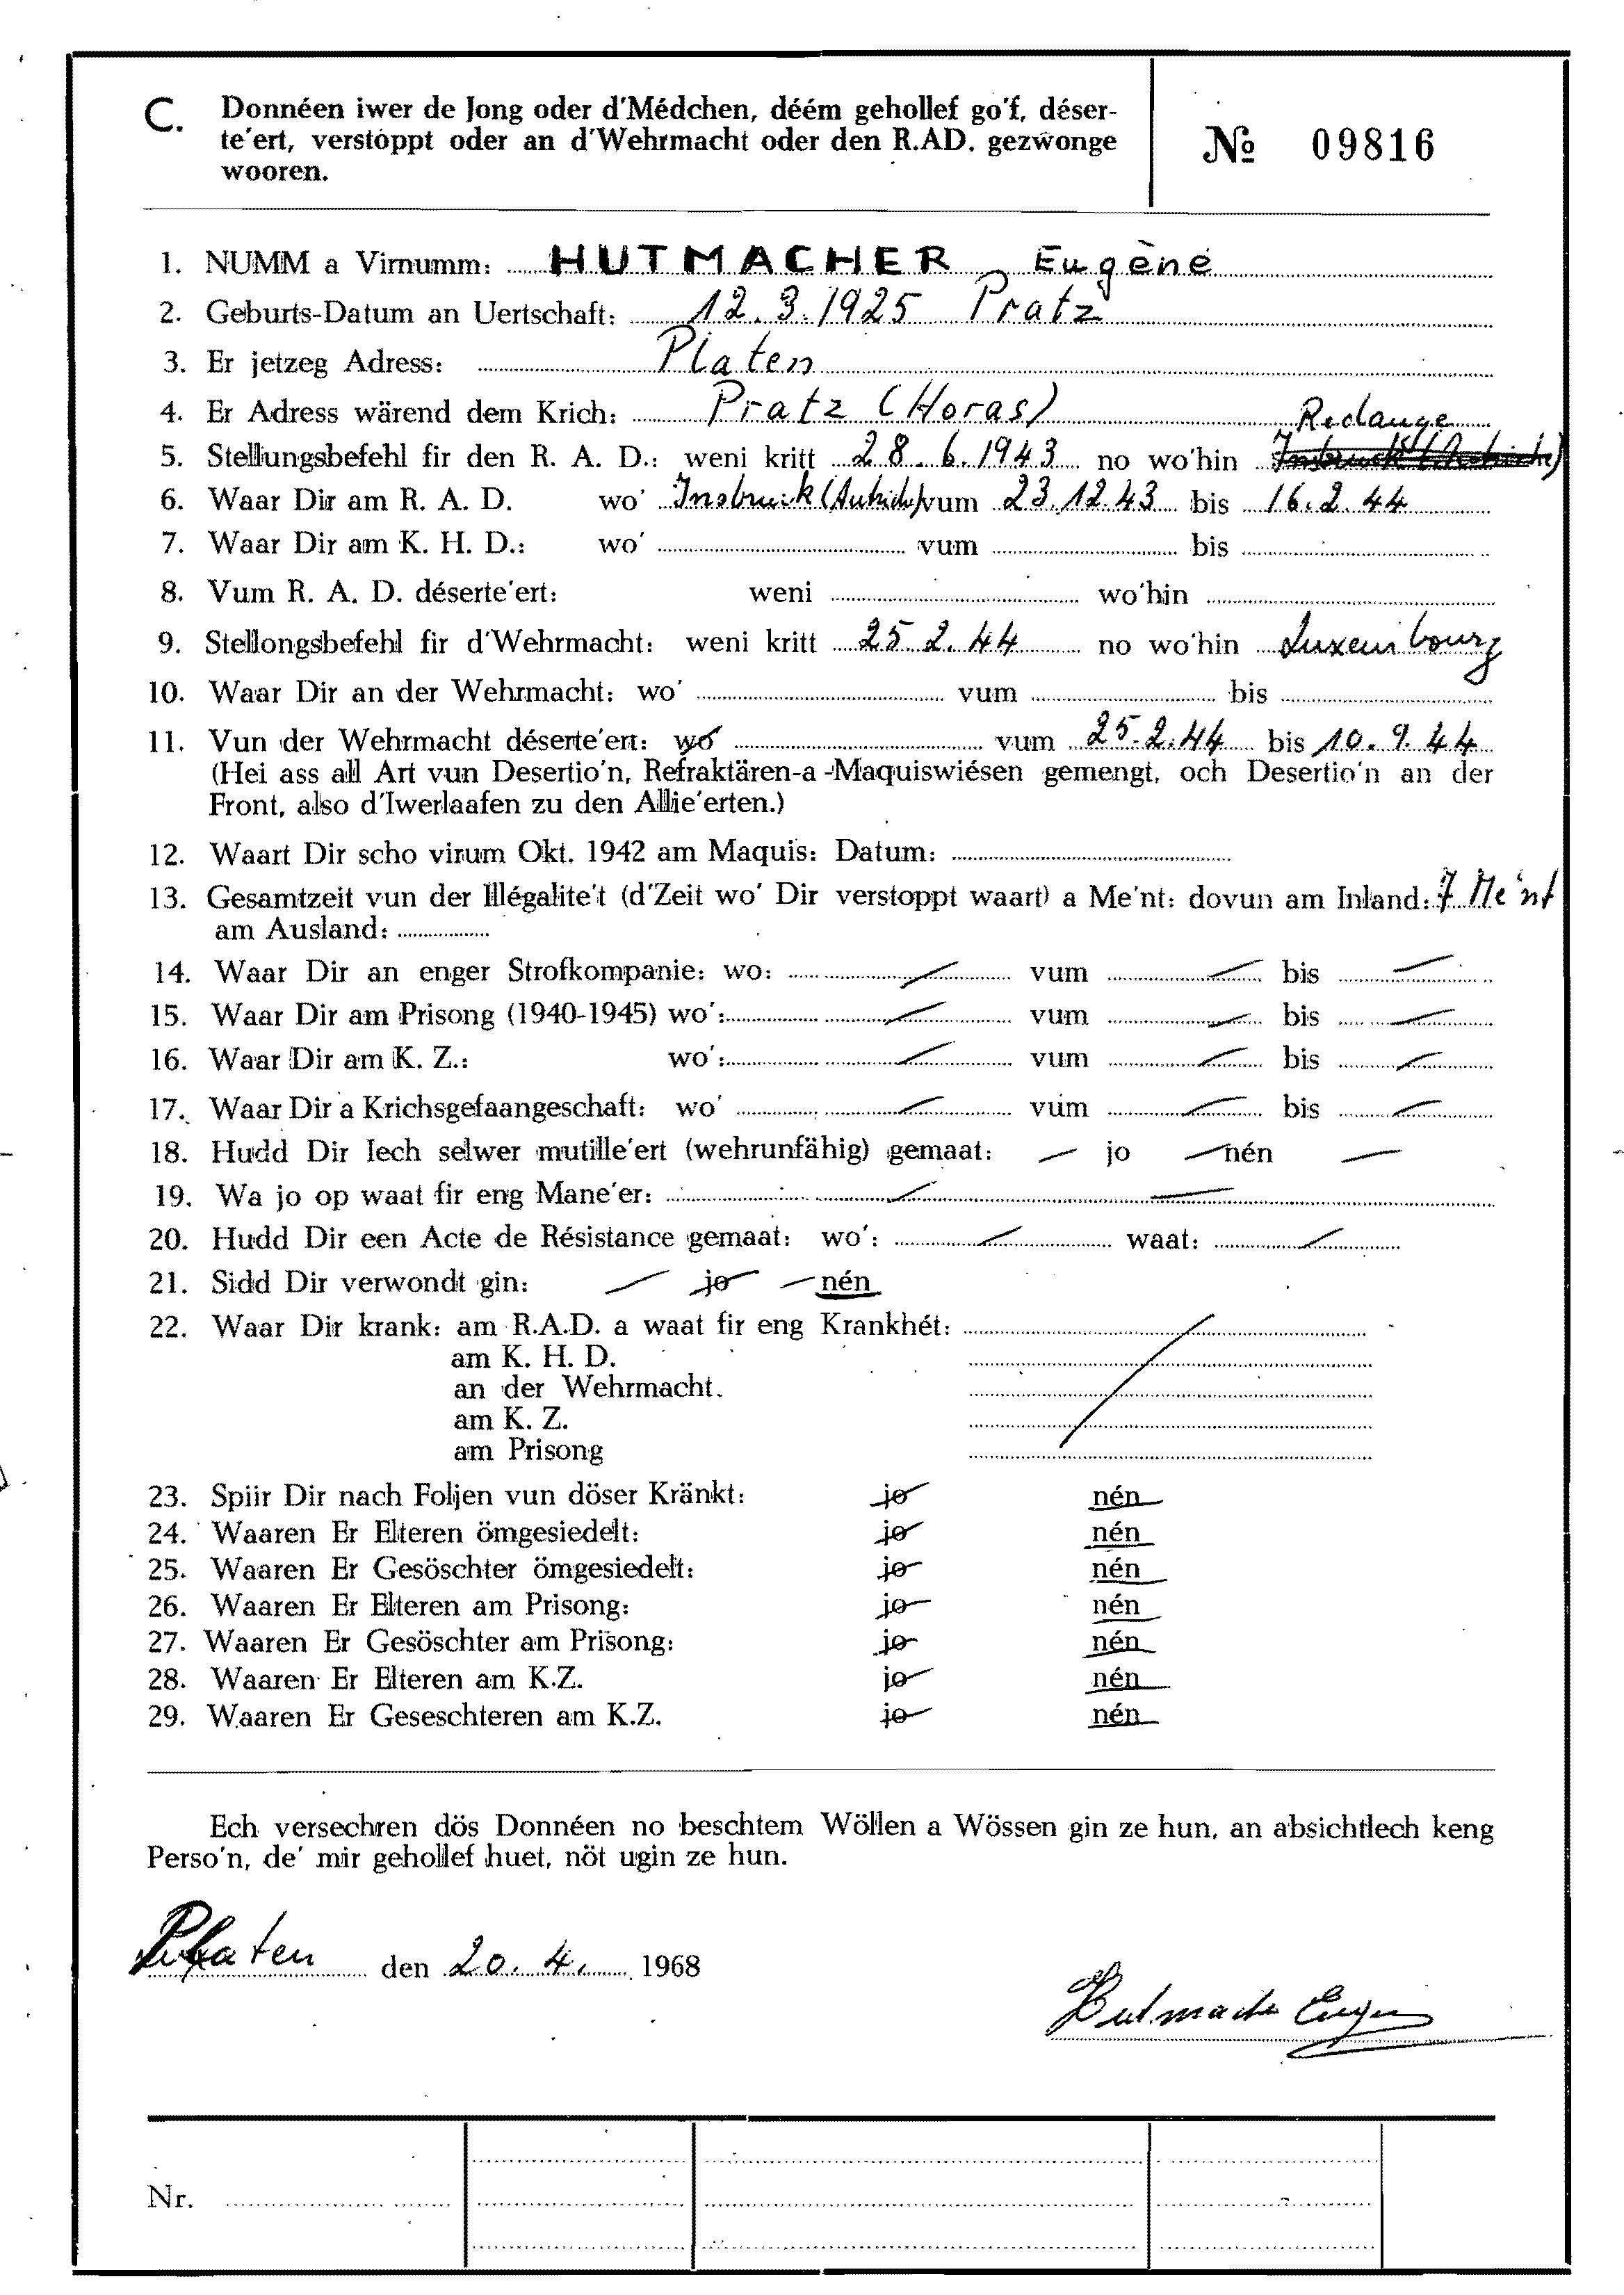 C. Donnéen iwer de Jong oder d'Médchen, déém gehollef go'f, déser-
te'ert, verstoppt oder an d'Wehrmacht oder den R.AD. gezwonge
wooren.
№ 09816
1. NUMM a Virnumm: HUTMACHER Eugène
2. Geburts-Datum an Uertschaft: 12.3.1925 Pratz
3. Er jetzeg Adress: Platen
4. Er Adress wärend dem Krich: Pratz (Horas)
Redange
5. Stellungsbefehl fir den R. A. D.: weni kritt 28.6.1943 no wo'hin
6. Waar Dir am R. A. D. wo' Insbruck (Autriche) vum 23.12.43 bis 16.2.44
7. Waar Dir am K. H. D.: wo' vum bis
8. Vum R. A. D. déserte'ert: weni wo'hin
9. Stellongsbefehl fir d'Wehrmacht: weni kritt 25.2.44 no wo'hin Luxembourg
10. Waar Dir an der Wehrmacht: wo' vum bis
11. Vun der Wehrmacht déserte'ert: wo vum 25.2.44 bis 10.9.44
(Hei ass all Art vun Desertio'n, Refraktären-a-Maquiswiésen gemengt, och Desertio'n an der
Front, also d'Iwerlaafen zu den Allie'erten.)
12. Waart Dir scho virum Okt. 1942 am Maquis: Datum:
13. Gesamtzeit vun der Illégalite't (d'Zeit wo' Dir verstoppt waart) a Me'nt: dovun am Inland: 7 Me'nt
am Ausland:
14. Waar Dir an enger Strofkompanie: wo: vum bis
15. Waar Dir am Prisong (1940-1945) wo': vum bis
16. Waar Dir am K. Z.: wo': vum bis
17. Waar Dir a Krichsgefaangeschaft: wo' vum bis
18. Hudd Dir Iech selwer mutille'ert (wehrunfähig) gemaat: jo nén
19. Wa jo op waat fir eng Mane'er:
20. Hudd Dir een Acte de Résistance gemaat: wo': waat:
21. Sidd Dir verwondt gin: jo nén
22. Waar Dir krank: am R.A.D. a waat fir eng Krankhét:
am K. H. D.
an der Wehrmacht.
am K. Z.
am Prisong
23. Spiir Dir nach Foljen vun döser Kränkt: jo nén
24. Waaren Er Elteren ömgesiedelt: jo nén
25. Waaren Er Gesöschter ömgesiedelt: jo nén
26. Waaren Er Elteren am Prisong: jo nén
27. Waaren Er Gesöschter am Prisong: jo nén
28. Waaren Er Elteren am K.Z. jo nén
29. Waaren Er Geseschteren am K.Z. jo nén
Ech versechren dös Donnéen no beschtem Wöllen a Wössen gin ze hun, an absichtlech keng
Perso'n, de' mir gehollef huet, nöt ugin ze hun.
Platen den 20.4. 1968
Hutmacher Eugène
Nr.